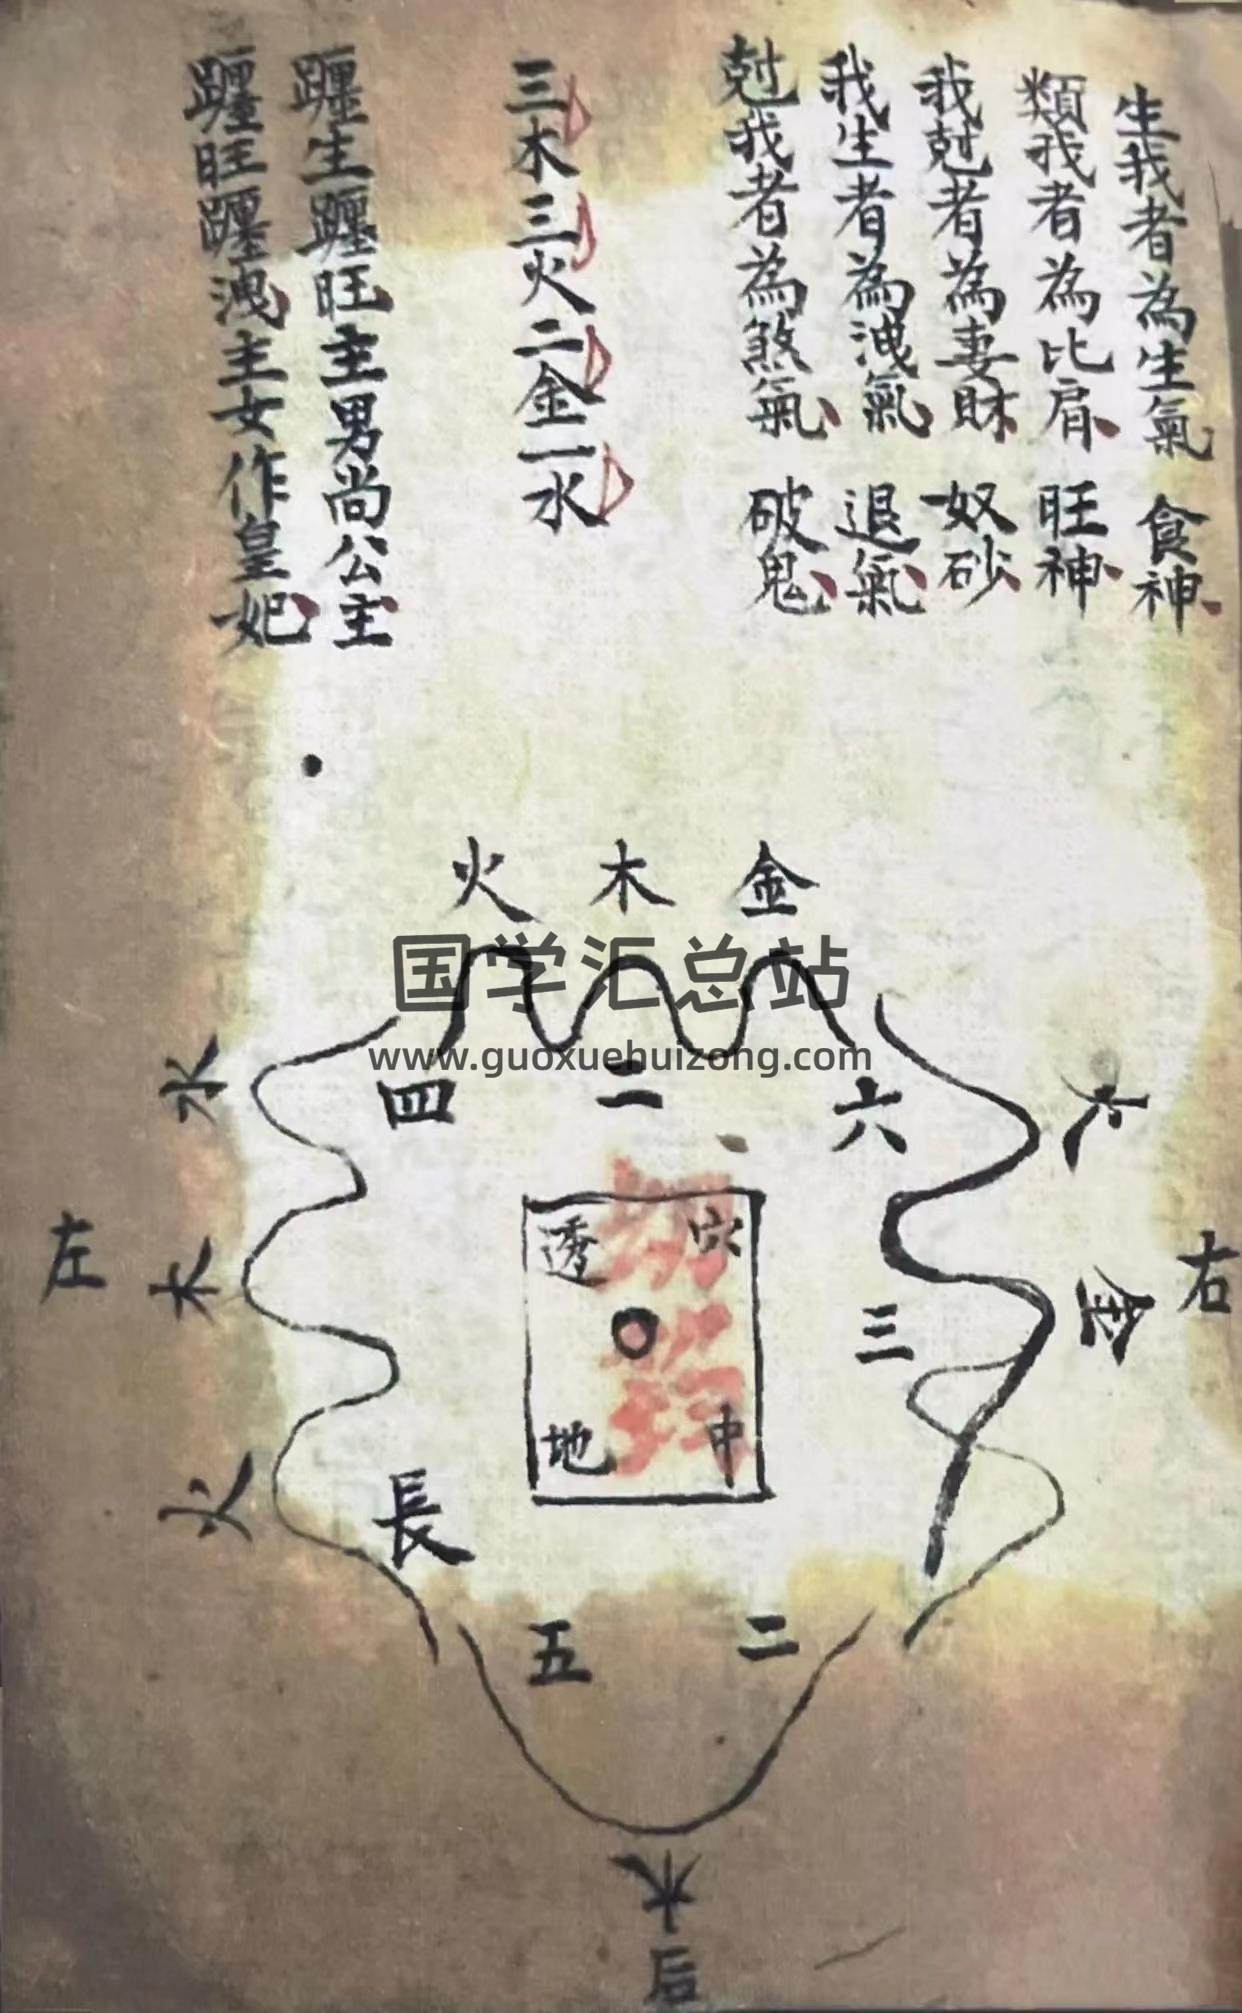 生我者為生氣 食神
類我者為比肩 旺神
我尅者為妻財 奴砂
我生者為洩氣 退氣
尅我者為煞氣 破鬼
三木三火二金一水
躔生躔旺主男尚公主
躔旺躔洩主女作皇妃
火 木 金
国学汇总站
www.guoxuehuizong.com
水 四 二 六 火
透 穴
左 木 三 金 右
地 中
火 長
五 二
木